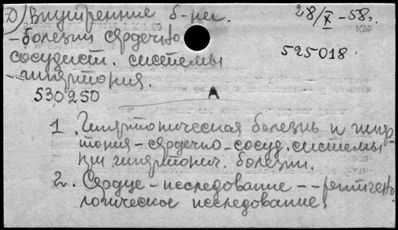 Д) Внутренние б-ни. 28/X-58г.
-болезни сердечно
сосудист. системы 525018.
-гипертония.
530250
А
1. Гипертоническая болезнь и гипер-
тония-сердечно-сосуд. системы
при гипертонич. болезни.
2. Сердце-исследование--рентгено
логическое исследование.